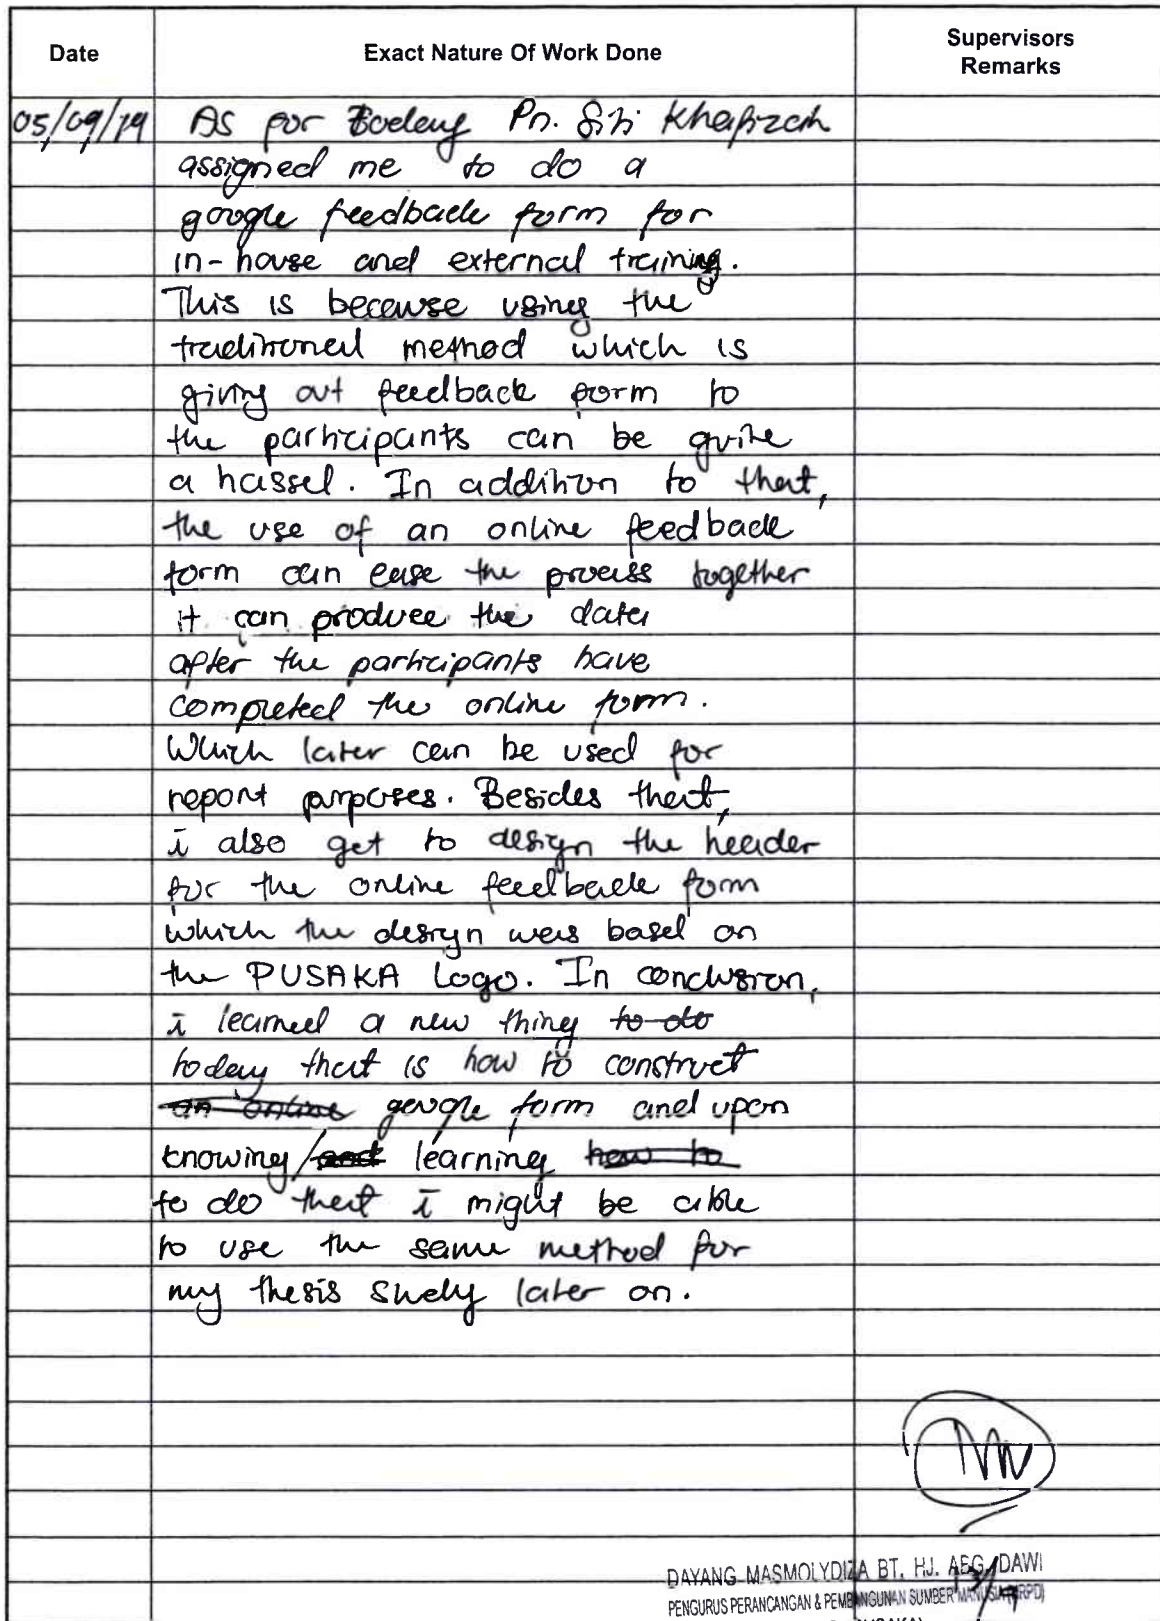 Date
Exact Nature Of Work Done
Supervisors
Remarks
05/09/19
As for today Pn. Siti Khafizah
assigned me to do a
google feedback form for
in-house and external training.
This is because using the
traditional method which is
giving out feedback form to
the participants can be quite
a hassel. In addition to that,
the use of an online feedback
form can ease the process together
it can produce the data
after the participants have
completed the online form.
Which later can be used for
report purposes. Besides that,
i also get to design the header
for the online feedback form
which the design was based on
the PUSAKA Logo. In conclusion,
i learned a new thing to do
today that is how to construct
an online google form and upon
knowing/and learning how to
to do that i might be able
to use the same method for
my thesis study later on.
DAYANG MASMOLYDIZA BT. HJ. ABG. DAWI
PENGURUS PERANCANGAN & PEMBANGUNAN SUMBER MANUSIA (HRPD)